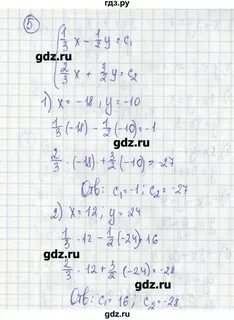 гдз.ру
5
{ 1/3 x - 1/2 y = c₁
{ 2/3 x + 3/2 y = c₂
1) x = -18, y = -10
1/3 · (-18) - 1/2 · (-10) = -1
2/3 · (-18) + 3/2 (-10) = -27
Отв: c₁ = -1; c₂ = -27
2) x = 12; y = 24
1/3 · 12 - 1/2 (-24) = 16
2/3 · 12 + 3/2 (-24) = -28
Отв: c₁ = 16; c₂ = -28